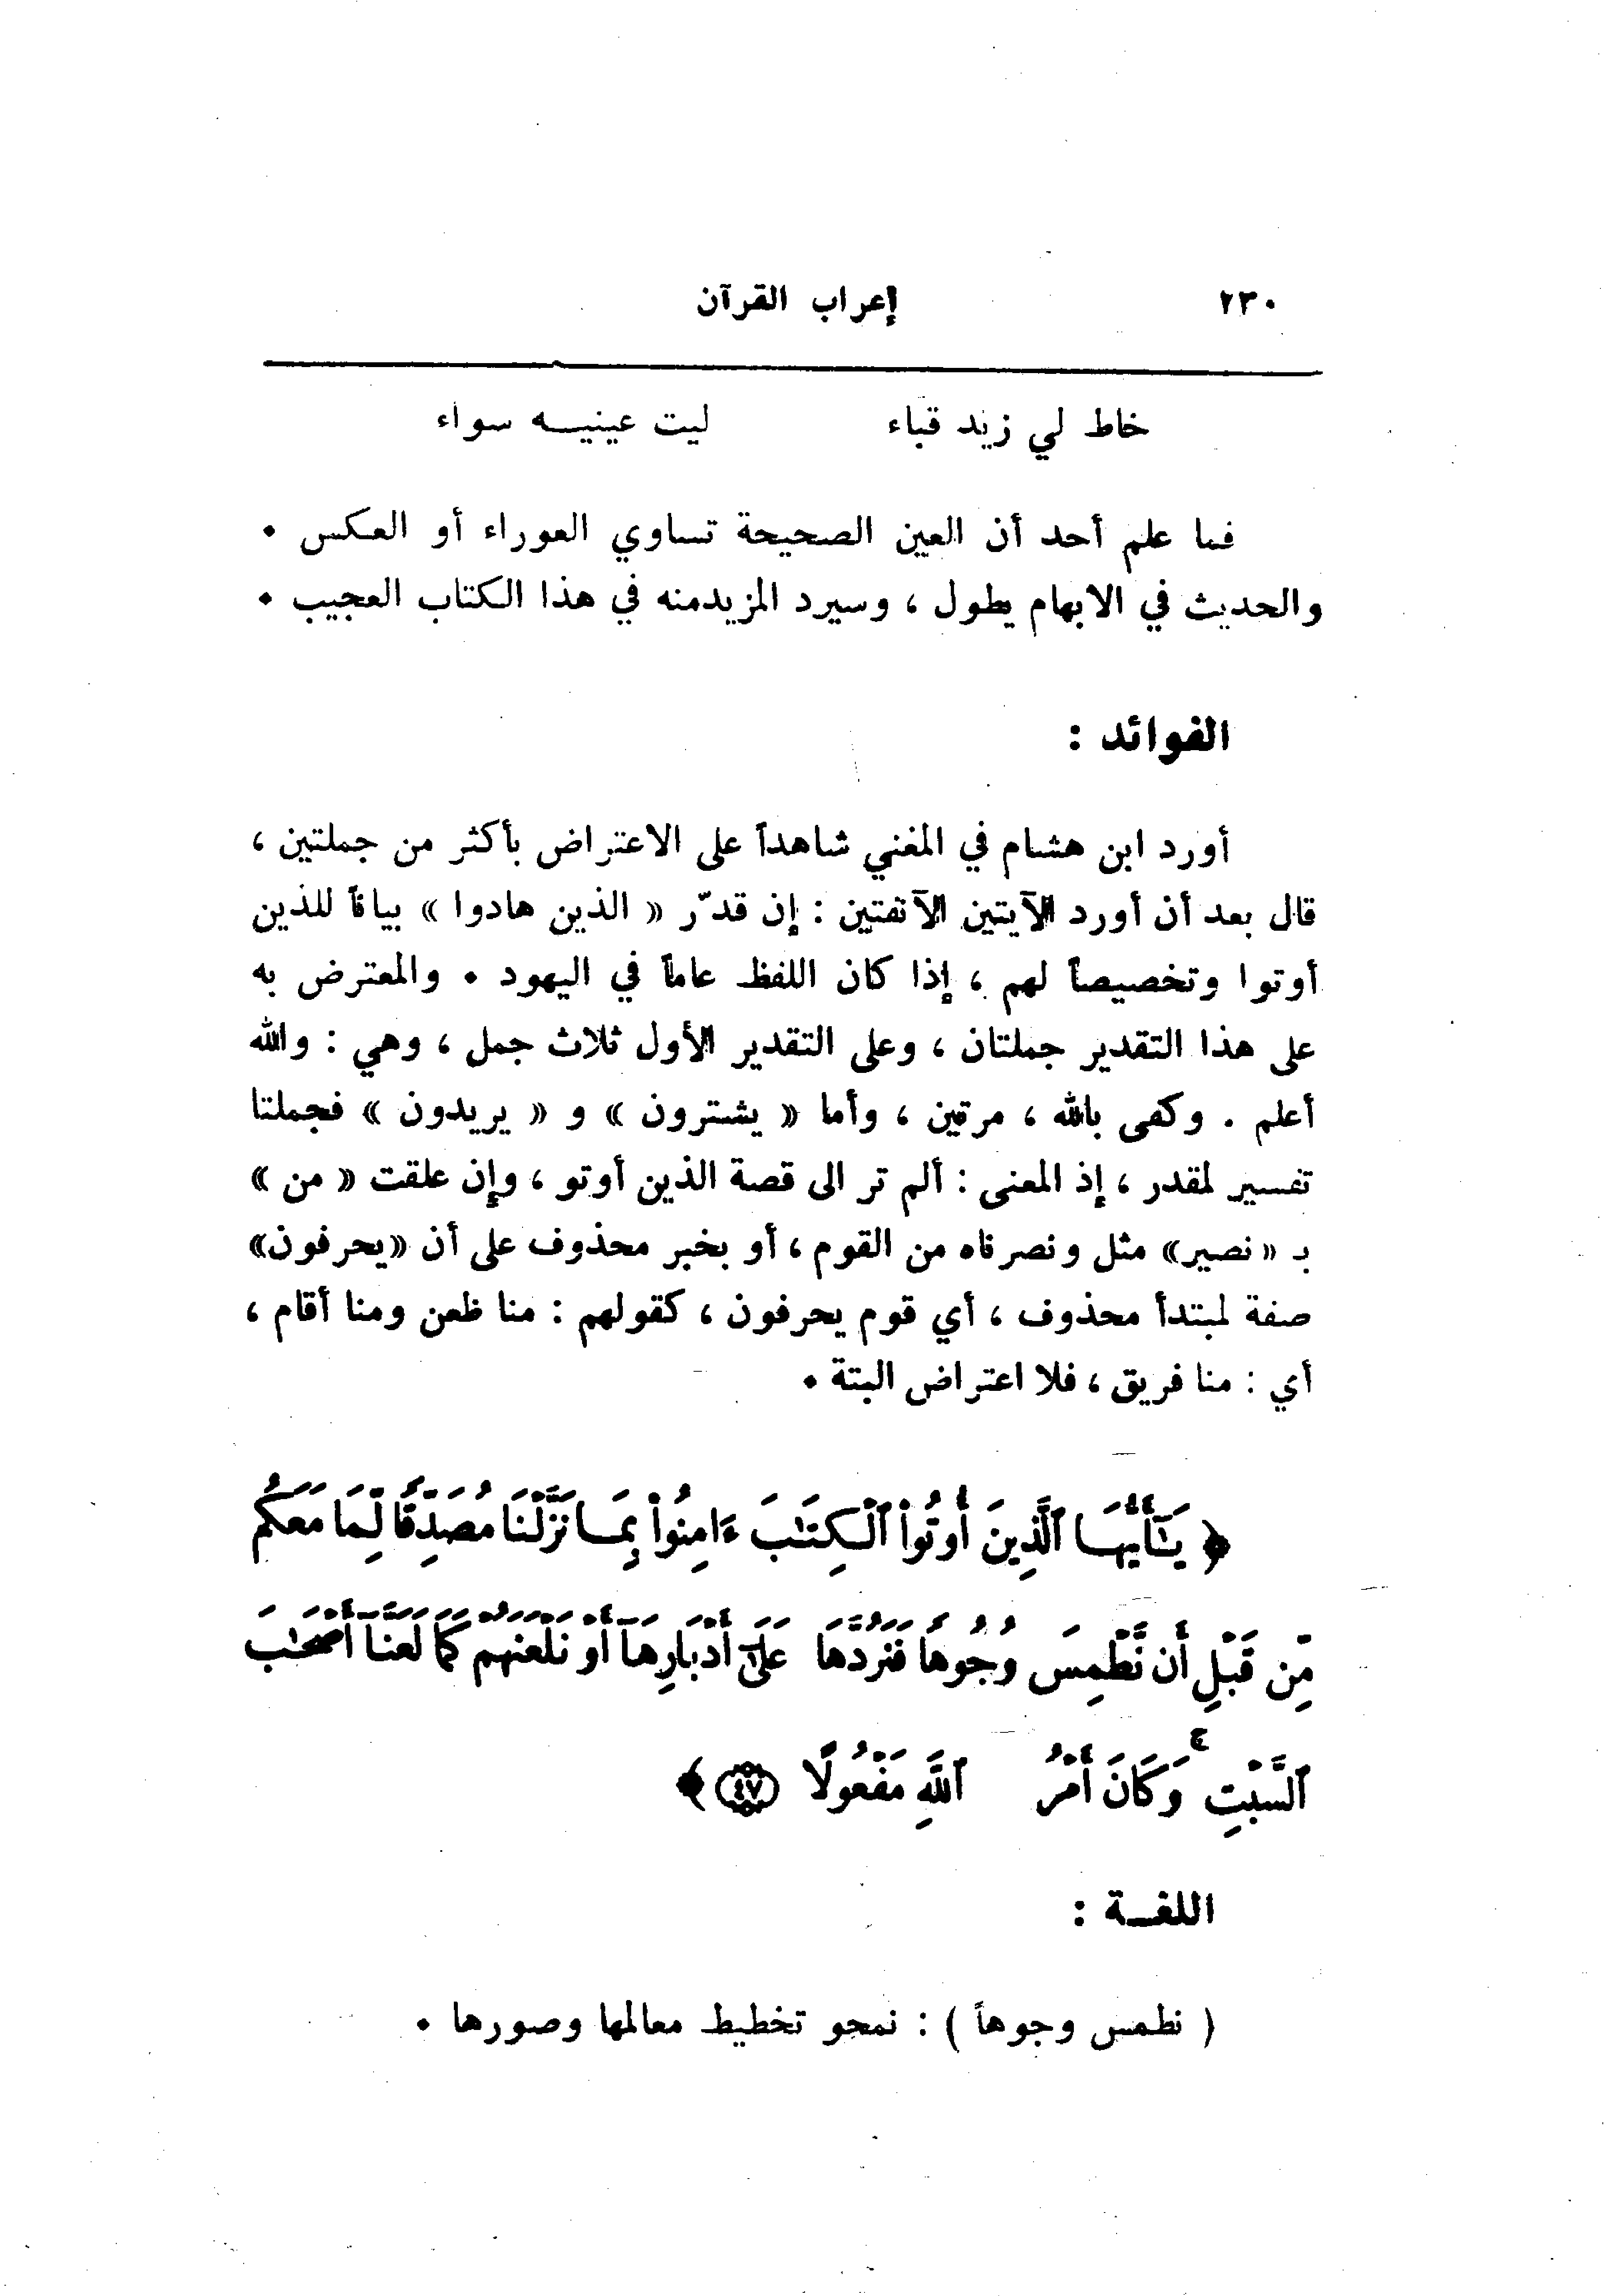 ٢٣٠ إعراب القرآن
خاط لي زيد قباء ليت عينيـــه سواء
فما علم أحد أن العين الصحيحة تساوي العوراء أو العكس •
والحديث في الابهام يطول ، وسيرد المزيد منه في هذا الكتاب العجيب •
الفوائد :
أورد ابن هشام في المغني شاهداً على الاعتراض بأكثر من جملتين ،
قال بعد أن أورد الآيتين الآنفتين : إن قدّر « الذين هادوا » بياناً للذين
أوتوا وتخصيصاً لهم ، إذا كان اللفظ عاماً في اليهود • والمعترض به
على هذا التقدير جملتان ، وعلى التقدير الأول ثلاث جمل ، وهي : والله
أعلم . وكفى بالله ، مرتين ، وأما « يشترون » و « يريدون » فجملتا
تفسير لمقدر ، إذ المعنى : ألم تر الى قصة الذين أوتو ، وإن علقت « من »
بـ «نصير» مثل ونصرناه من القوم ، أو بخبر محذوف على أن «يحرفون»
صفة لمبتدأ محذوف ، أي قوم يحرفون ، كقولهم : منا ظعن ومنا أقام ،
أي : منا فريق ، فلا اعتراض البتة •
﴿ يَٰٓأَيُّهَا ٱلَّذِينَ أُوتُوا۟ ٱلْكِتَٰبَ ءَامِنُوا۟ بِمَا نَزَّلْنَا مُصَدِّقًا لِّمَا مَعَكُم
مِّن قَبْلِ أَن نَّطْمِسَ وُجُوهًا فَنَرُدَّهَا عَلَىٰٓ أَدْبَارِهَآ أَوْ نَلْعَنَهُمْ كَمَا لَعَنَّآ أَصْحَٰبَ
ٱلسَّبْتِ ۚ وَكَانَ أَمْرُ ٱللَّهِ مَفْعُولًا ٤٧ ﴾
اللغـــة :
( نطمس وجوهاً ) : نمحو تخطيط معالمها وصورها •